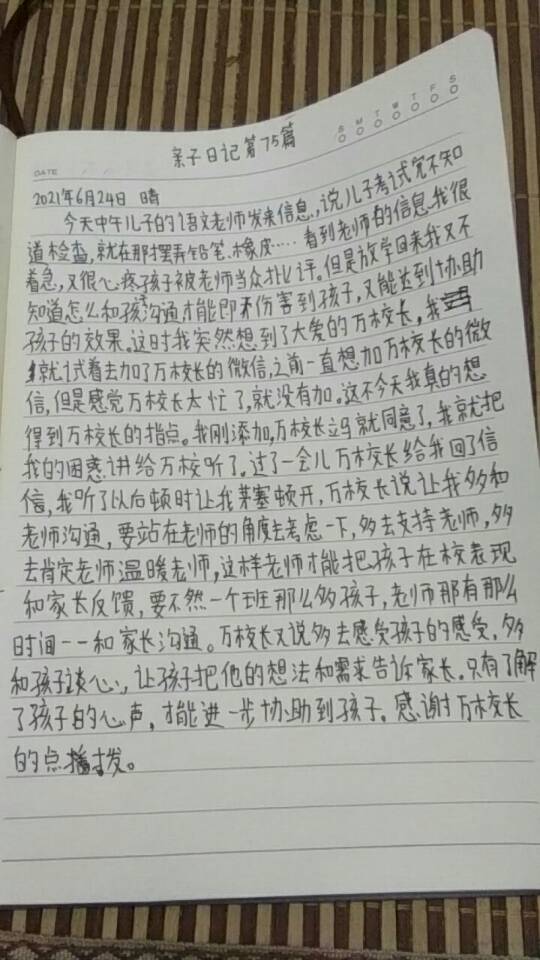 亲子日记第75篇
S M T W T F S
DATE / /
2021年6月24日 晴
今天中午儿子的语文老师发来信息,说儿子考试完不知
道检查,就在那摆弄铅笔、橡皮……看到老师的信息我很
着急,又很心疼孩子被老师当众批评。但是放学回来我又不
知道怎么和孩子沟通才能即不伤害到孩子,又能达到协助
孩子的效果。这时我突然想到了大爱的万校长,我
就试着去加了万校长的微信,之前一直想加万校长的微
信,但是感觉万校长太忙了,就没有加。这不今天我真的想
得到万校长的指点。我刚添加,万校长立马就同意了,我就把
我的困惑讲给万校听了。过了一会儿万校长给我回了信
信,我听了以后顿时让我茅塞顿开,万校长说让我多和
老师沟通,要站在老师的角度去考虑一下,多去支持老师,多
去肯定老师温暖老师,这样老师才能把孩子在校表现
和家长反馈,要不然一个班那么多孩子,老师那有那么
时间一一和家长沟通。万校长又说多去感受孩子的感受,多
和孩子谈心,让孩子把他的想法和需求告诉家长。只有了解
了孩子的心声,才能进一步协助到孩子。感谢万校长
的点拨。